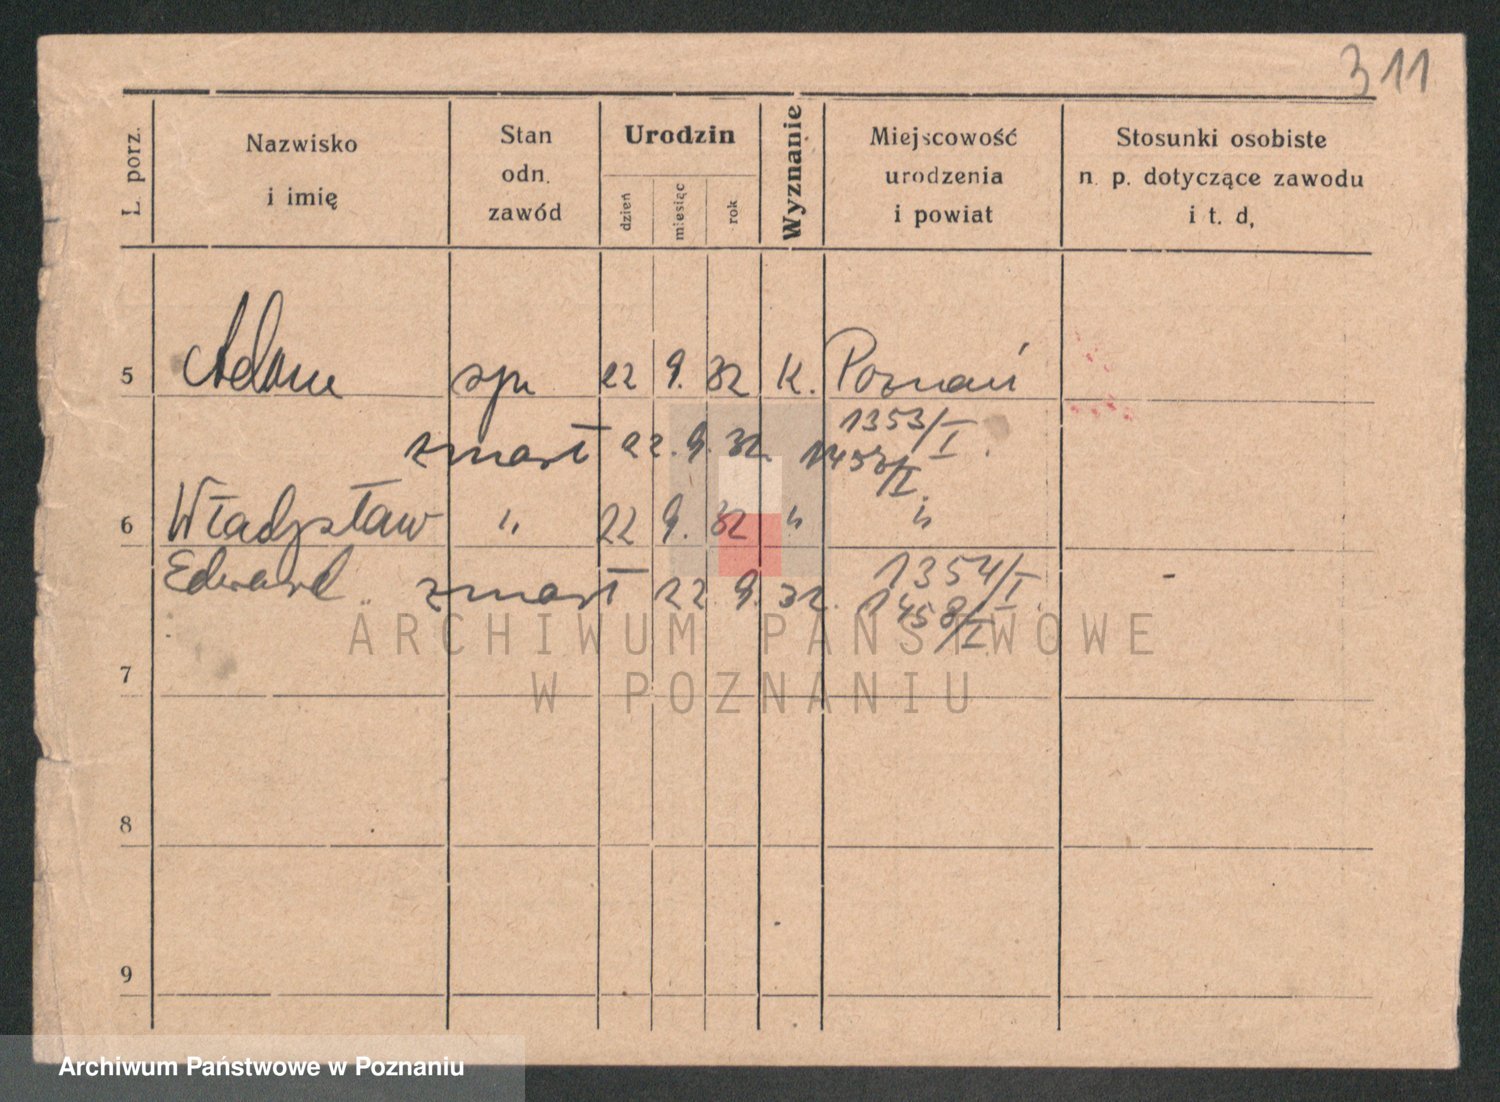 311
L. porz.
Nazwisko
i imię
Stan
odn.
zawód
Urodzin
dzień
miesiąc
rok
Wyznanie
Miejscowość
urodzenia
i powiat
Stosunki osobiste
n. p. dotyczące zawodu
i t. d,
5 Adam syn 22 9. 32 K. Poznań
1353/I
zmarł 22. 9. 32. 1453/I.
6 Władysław " 22 9. 32 " "
Edward zmarł 22. 9. 32. 1354/I
1458/I.
ARCHIWUM PAŃSTWOWE
W POZNANIU
7
8
9
Archiwum Państwowe w Poznaniu